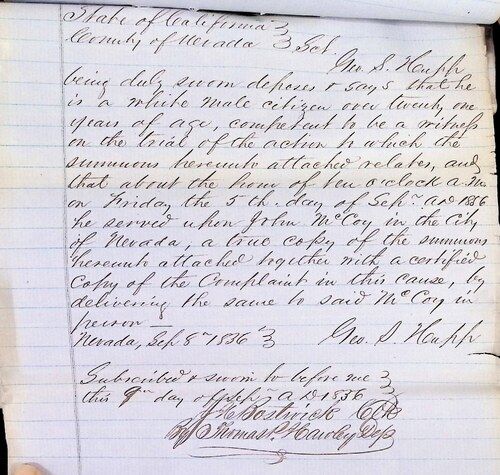 State of California }
County of Nevada } Sct.
Geo S. Hupp
being duly sworn deposes & says that he
is a white male citizen over twenty one
years of age, competent to be a witness
on the trial of the action to which the
summons hereunto attached relates, and
that about the hour of ten o'clock a.m.
on Friday the 5th. day of Sepr AD 1856
he served upon John McCoy in the City
of Nevada, a true copy of the summons
hereunto attached together with a certified
Copy of the Complaint in this cause, by
delivering the same to said McCoy in
person —
Nevada, Sep 8th 1856 } Geo. S. Hupp
Subscribed & sworn to before me }
this 9th day of Sepr AD 1856 }
Bostwick Clk
By Thomas P. Hawley Dep